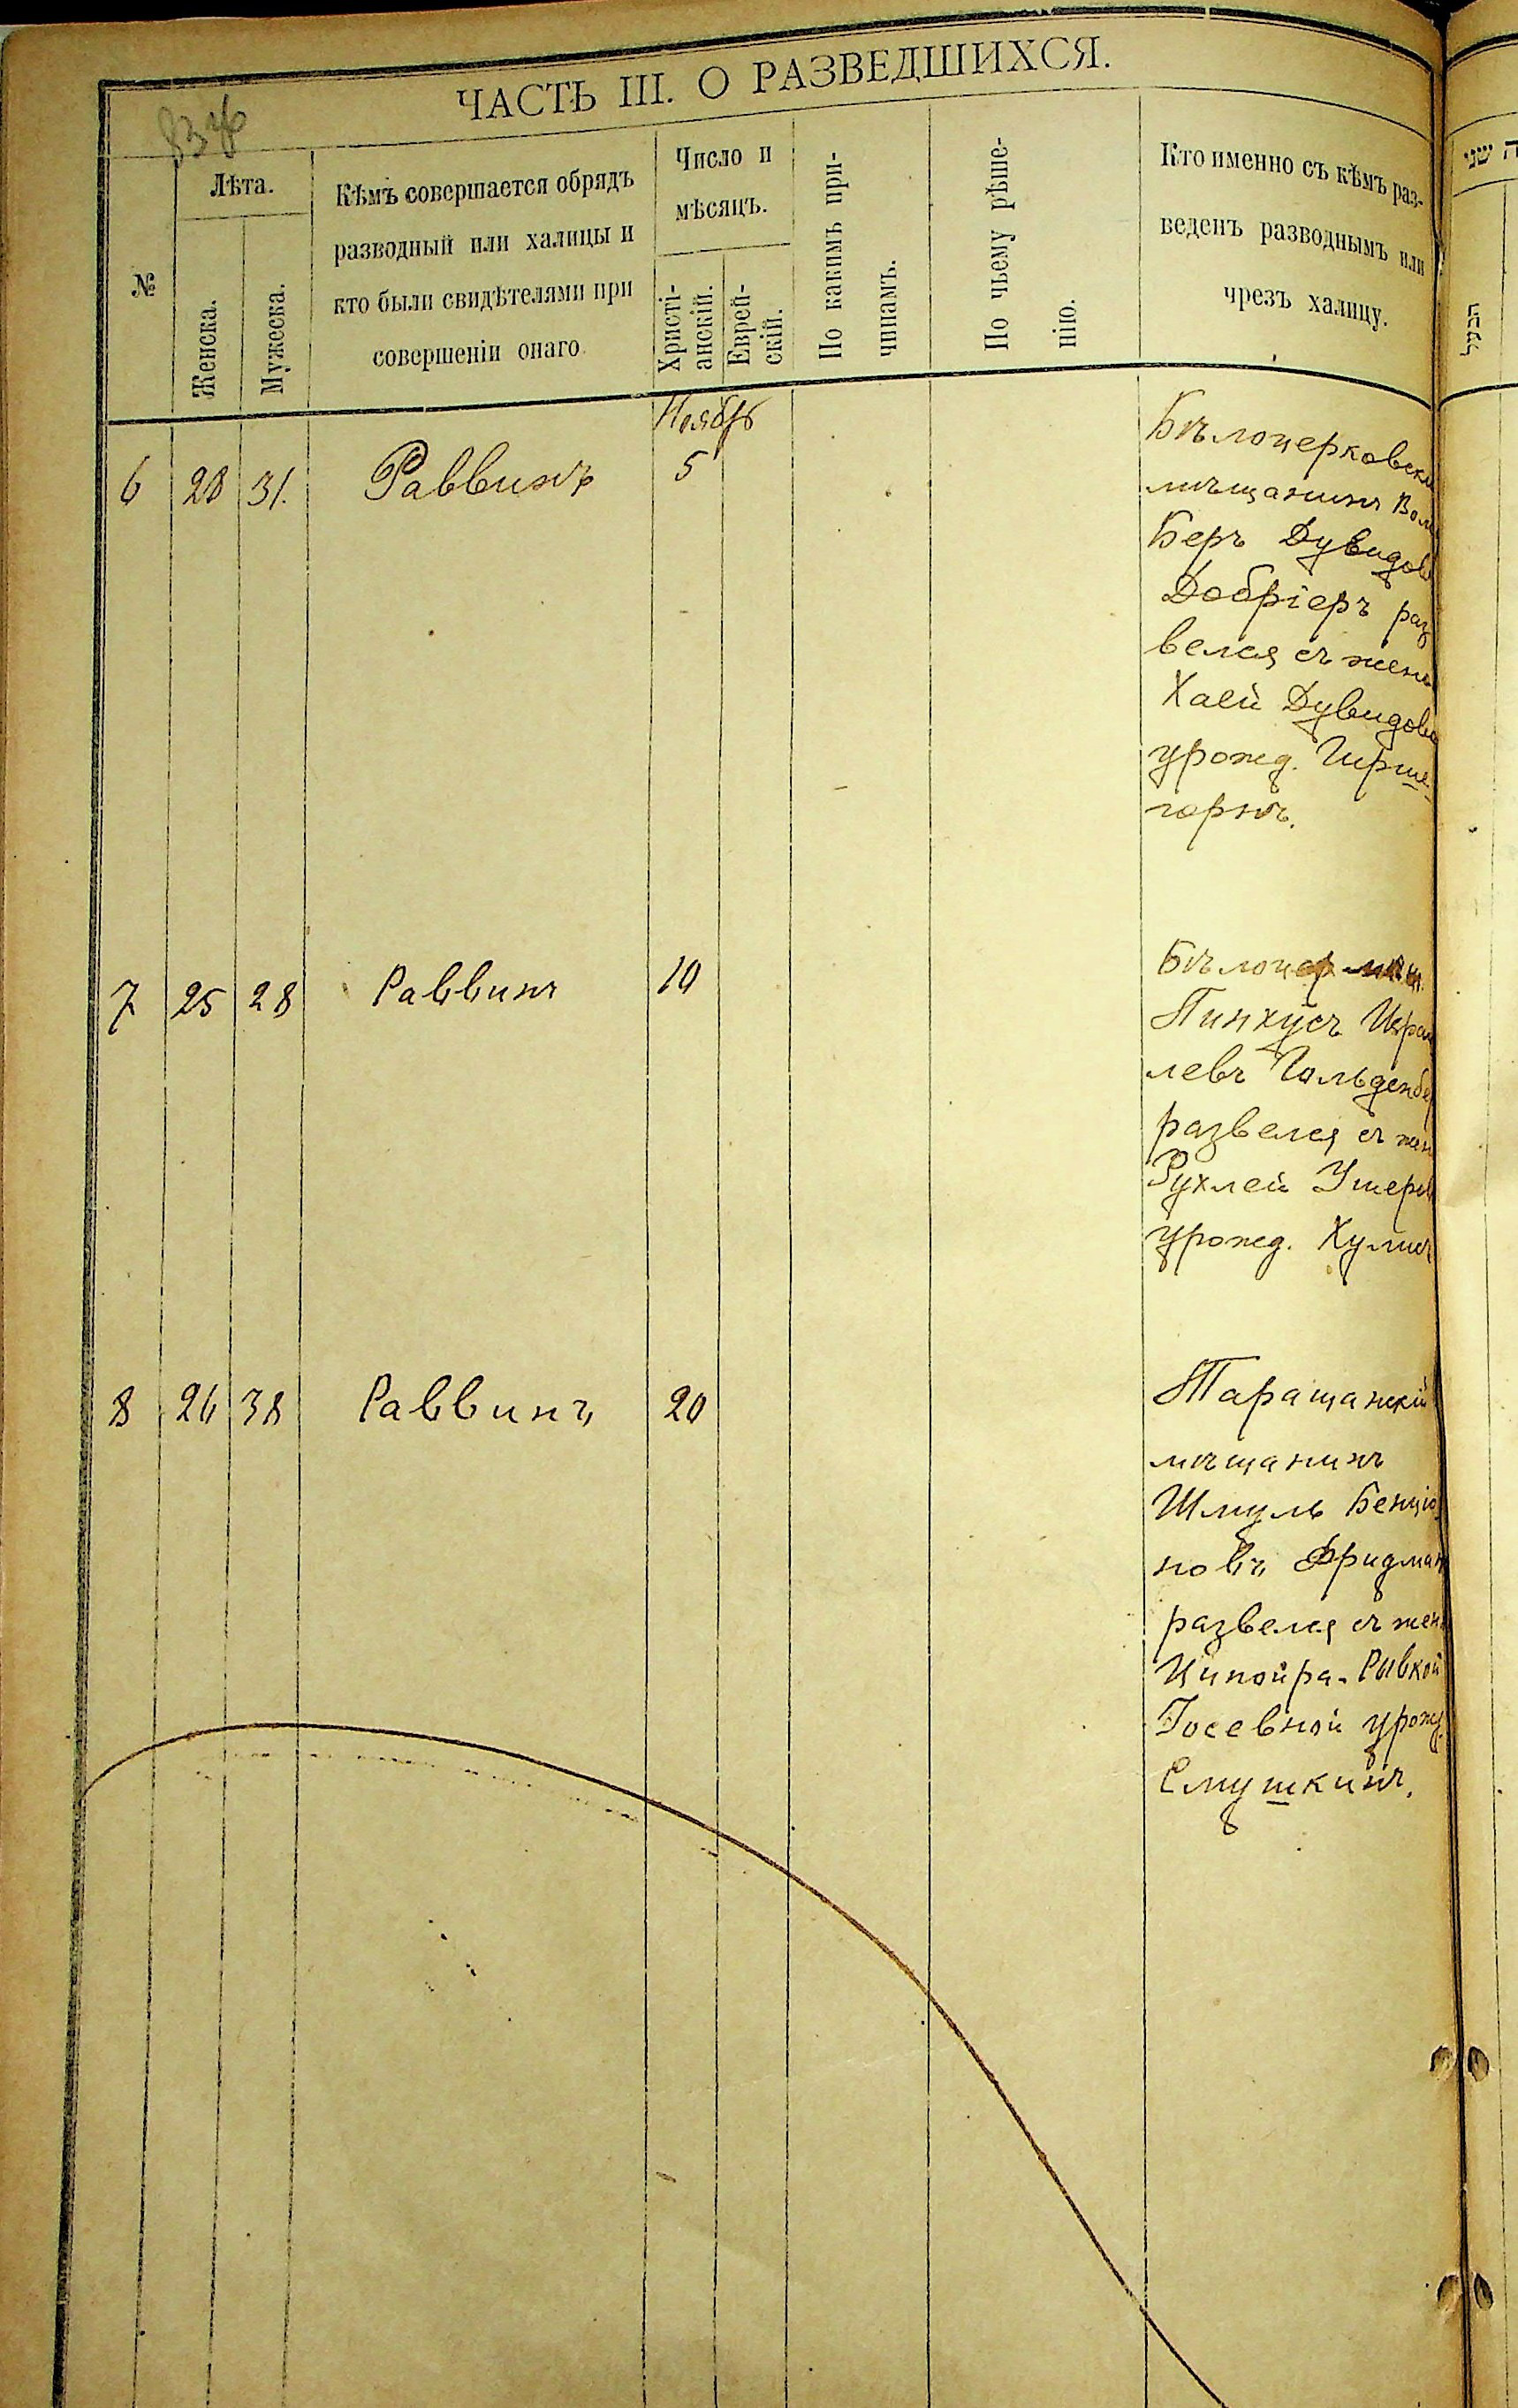 ЧАСТЬ III. О РАЗВЕДШИХСЯ.
№
Лѣта.
Женска.
Мужеска.
Кѣмъ совершается обрядъ
разводный или халицы и
кто были свидѣтелями при
совершеніи онаго
Число и
мѣсяцъ.
Христі-
анскій.
Еврей-
скій.
По какимъ при-
чинамъ.
По чьему рѣше-
нію.
Кто именно съ кѣмъ раз-
веденъ разводнымъ или
чрезъ халицу.
ה שני
הבעל
Ноябрь
6 28 31. Раввинъ 5
Бѣлоцерковскі
мѣщанинъ
Беръ Дувидов
Добріеръ раз
велся съ жено
Хаей Дувидово
урожд. Гирше-
горнъ.
7 25 28 Раввинъ 10
Бѣлоцер мѣщ.
Пинхусъ Изра
левъ Гольденбе
развелся съ жен
Рухлей Ушеров
урожд.
8 26 38 Раввинъ 20
Таращанскій
мѣщанинъ
Шмуль Бенціо
новъ Фридман
развелся съ жен
Ципойра-Рывкой
Іосевной урожд.
Смушкинъ.